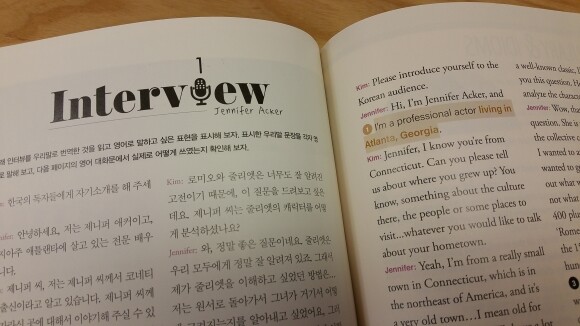 1
Interview
Jennifer Acker
인터뷰를 우리말로 번역한 것을 읽고 영어로 말하고 싶은 표현을 표시해 보자. 표시한 우리말 문장을 각자 영
말해 보고, 다음 페이지의 영어 대화문에서 실제로 어떻게 쓰였는지 확인해 보자.
한국의 독자들에게 자기소개를 해 주세
안녕하세요. 저는 제니퍼 애커이고,
아주 애틀랜타에 살고 있는 전문 배우
니다.
제니퍼 씨, 저는 제니퍼 씨께서 코네티
출신이라고 알고 있습니다. 제니퍼 씨께
라난 곳에 대해서 이야기해 주실 수 있
Kim: 로미오와 줄리엣은 너무도 잘 알려진
고전이기 때문에, 이 질문을 드려보고 싶은
데요. 제니퍼 씨는 줄리엣의 캐릭터를 어떻
게 분석하셨나요?
Jennifer: 와, 정말 좋은 질문이네요. 줄리엣은
우리 모두에게 정말 잘 알려져 있죠. 그래서
제가 줄리엣을 이해하고 싶었던 방법은...
저는 원서로 돌아가서 그녀가 거기서 어떻
게 그려지는지를 알아내고 싶었어요.
Kim: Please introduce yourself to the
Korean audience.
Jennifer: Hi, I'm Jennifer Acker, and
1 I'm a professional actor living in
Atlanta, Georgia.
Kim: Jennifer, I know you're from
Connecticut. Can you please tell
us about where you grew up? You
know, something about the culture
there, the people or some places to
visit...whatever you would like to talk
about your hometown.
Jennifer: Yeah, I'm from a really small
town in Connecticut, which is in
the northeast of America, and it's
a very old town...I mean old for
a well-known classic, I
you this question. H
analyze the charac
Jennifer: Wow, tha
question. She is
the collective c
I wanted to a
I wanted to g
out what no
not what
400 pla
'Rome
the